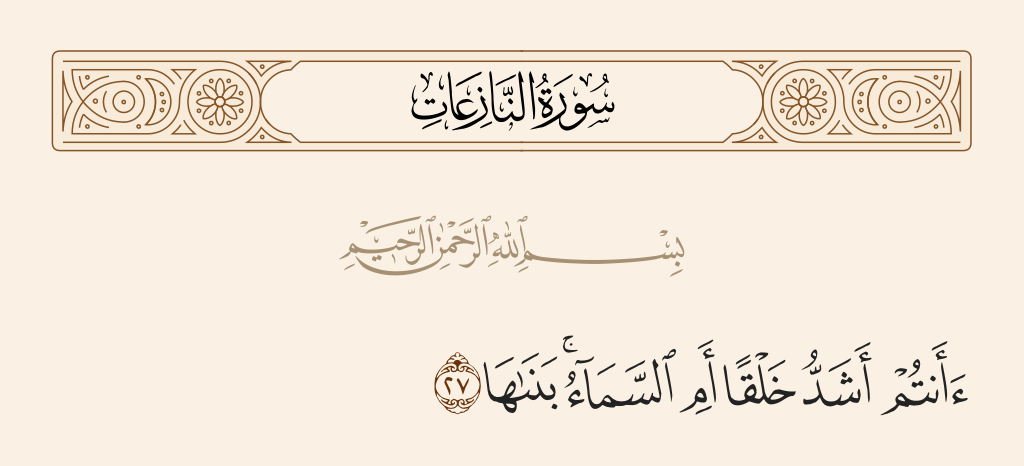 سُورَةُ النَّازِعَاتِ
بِسْمِ ٱللَّهِ ٱلرَّحْمَٰنِ ٱلرَّحِيمِ
ءَأَنتُمْ أَشَدُّ خَلْقًا أَمِ ٱلسَّمَآءُ ۚ بَنَىٰهَا ٢٧